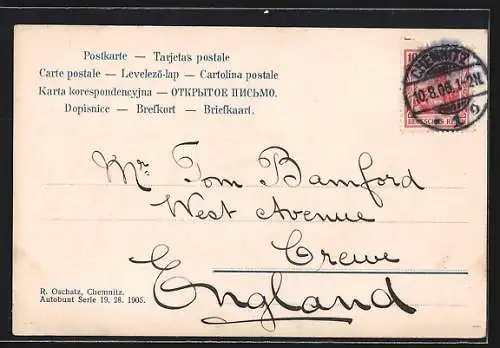 Postkarte — Tarjetas postale
Carte postale — Levelező-lap — Cartolina postale
Karta korespondencyjna — ОТКРЫТОЕ ПИСЬМО.
Dopisnice — Brefkort — Briefkaart.
10
CHEMNITZ
10.8.06.1-2N.
DEUTSCHES REICH
Mr. Tom Bamford
West Avenue
Crewe
England
R. Oschatz, Chemnitz.
Autobunt Serie 19. 28. 1905.